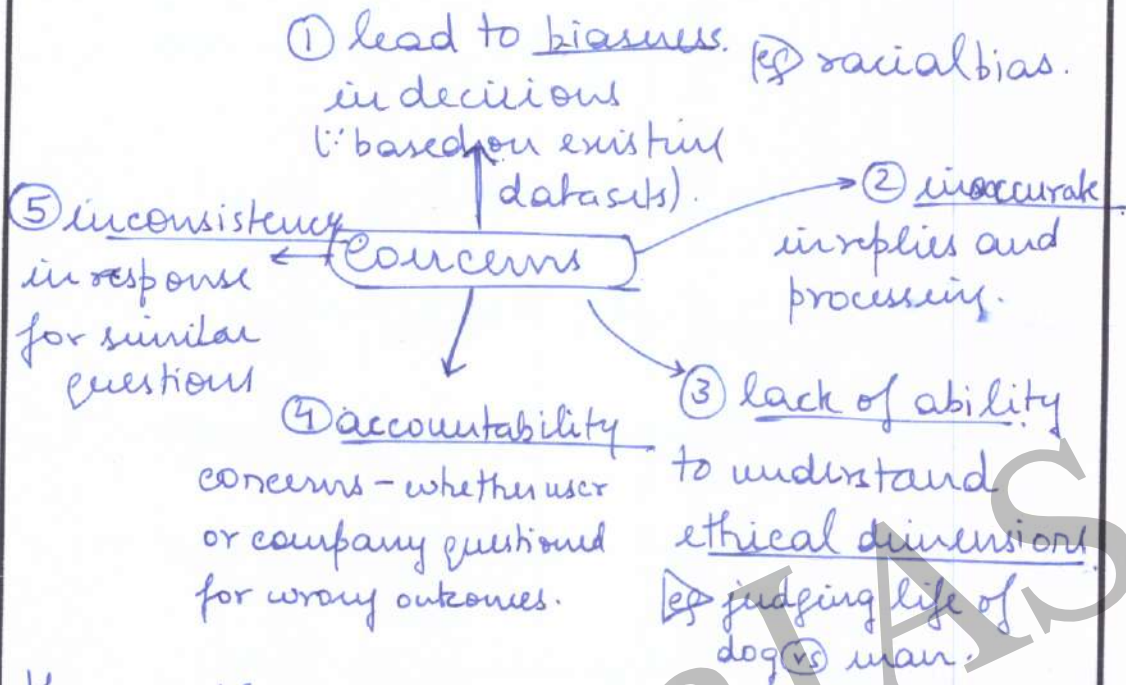 ① lead to biasness.
in decisions
(∵ based on existing
datasets).
eg racial bias.
② inaccurate
in replies and
processing.
⑤ inconsistency
in response
for similar
questions
Concerns
④ accountability
concerns – whether user
or company questioned
for wrong outcomes.
③ lack of ability
to understand
ethical dimensions
eg judging life of
dog vs man.
IAS